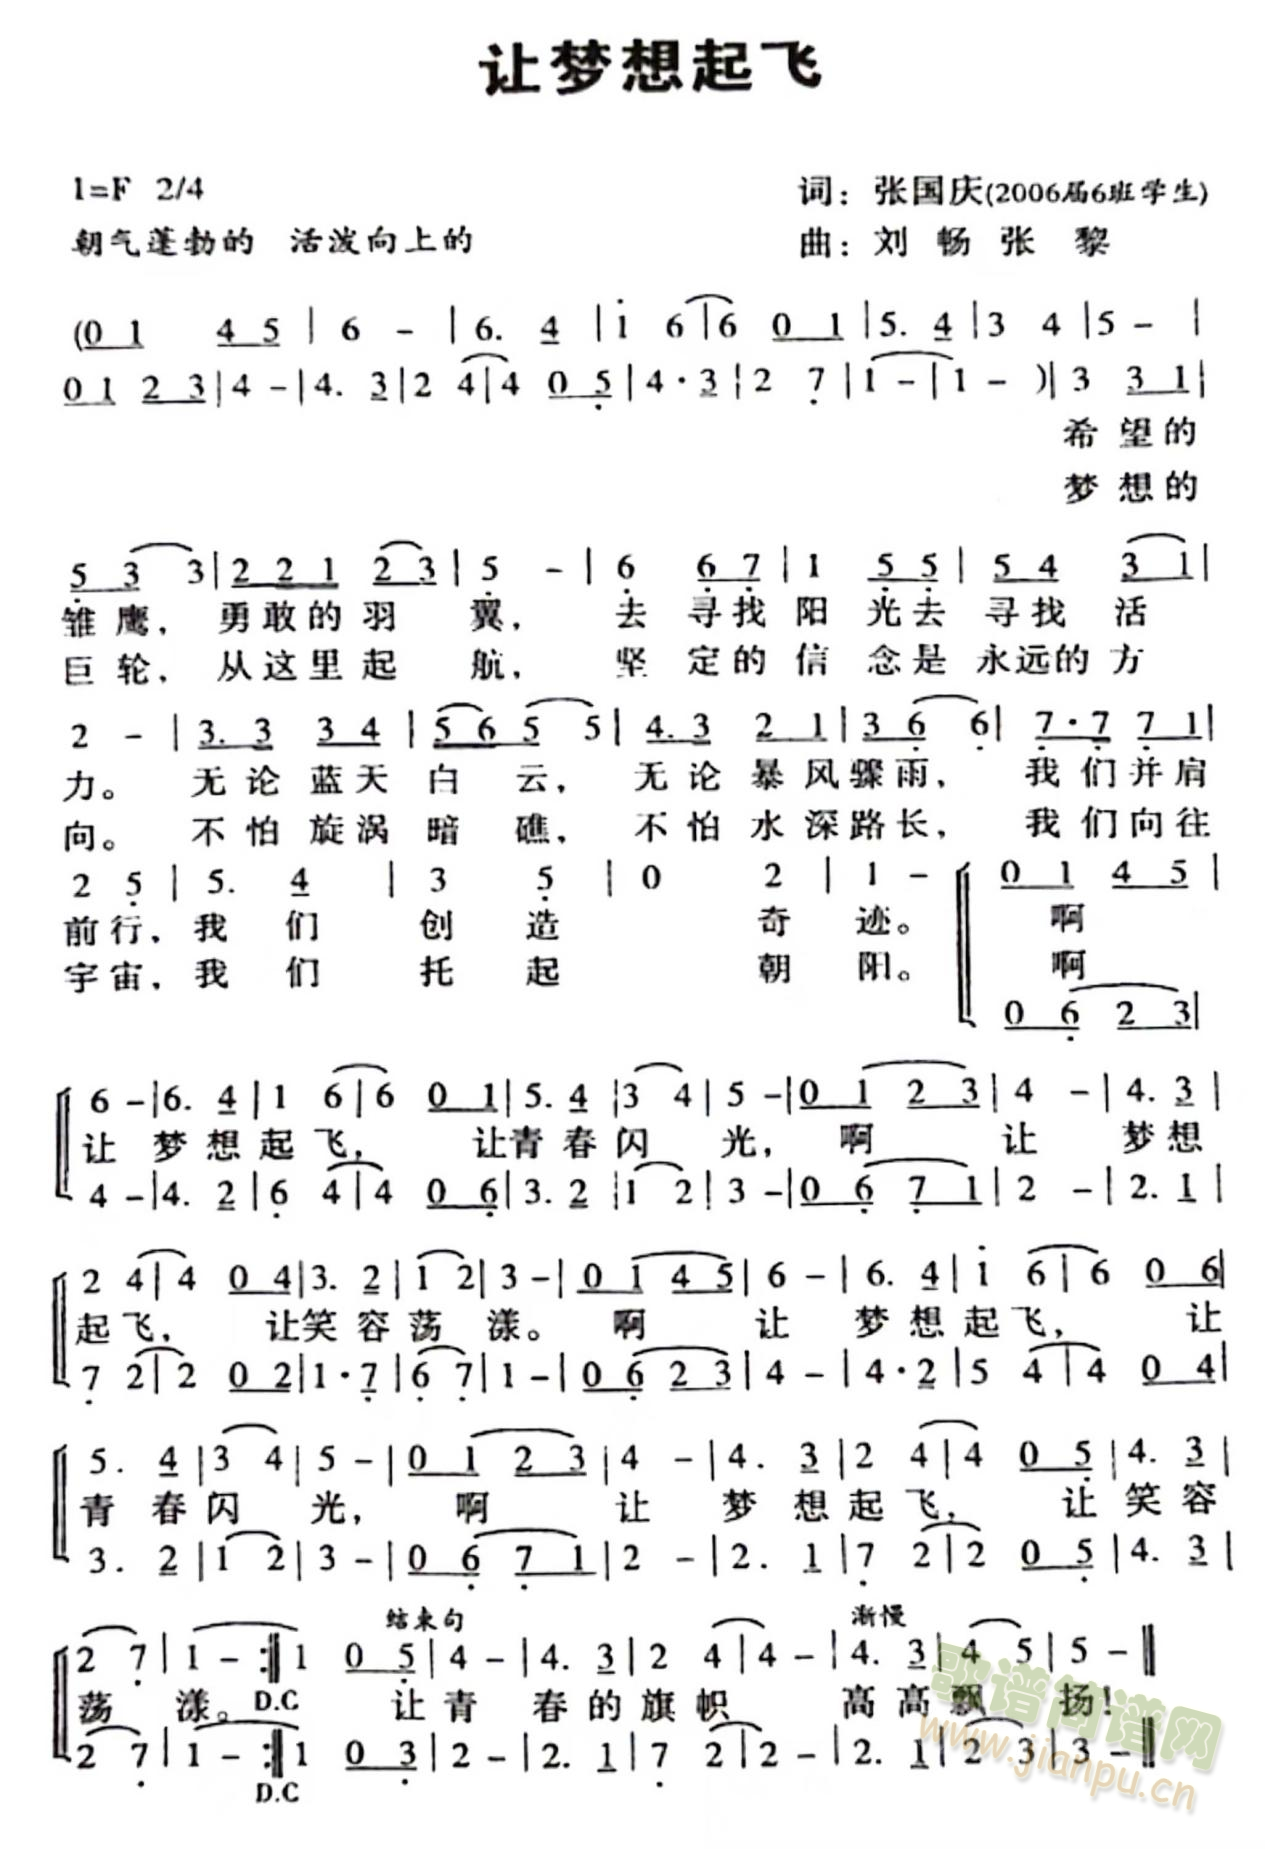 让梦想起飞
1=F 2/4 词：张国庆(2006届6班学生)
朝气蓬勃的 活泼向上的 曲：刘 畅 张 黎
(0 1 4 5 | 6 - | 6. 4 | i 6 | 6 0 1 | 5. 4 | 3 4 | 5 - |
0 1 2 3 | 4 - | 4. 3 | 2 4 | 4 0 5 | 4 · 3 | 2 7 | 1 - | 1 - ) | 3 3 1 |
希 望 的
梦 想 的
5 3 3 | 2 2 1 2 3 | 5 - | 6 6 7 | 1 5 5 | 5 4 3 1 |
雏 鹰， 勇 敢 的 羽 翼， 去 寻 找 阳 光 去 寻 找 活
巨 轮， 从 这 里 起 航， 坚 定 的 信 念 是 永 远 的 方
2 - | 3. 3 3 4 | 5 6 5 5 | 4. 3 2 1 | 3 6 6 | 7 · 7 7 1 |
力。 无 论 蓝 天 白 云， 无 论 暴 风 骤 雨， 我 们 并 肩
向。 不 怕 旋 涡 暗 礁， 不 怕 水 深 路 长， 我 们 向 往
2 5 | 5. 4 | 3 5 | 0 2 | 1 - 0 1 4 5 |
前 行， 我 们 创 造 奇 迹。 啊
宇 宙， 我 们 托 起 朝 阳。 啊
0 6 2 3 |
6 - | 6. 4 | 1 6 | 6 0 1 | 5. 4 | 3 4 | 5 - | 0 1 2 3 | 4 - | 4. 3 |
让 梦 想 起 飞， 让 青 春 闪 光， 啊 让 梦 想
4 - | 4. 2 | 6 4 | 4 0 6 | 3. 2 | 1 2 | 3 - | 0 6 7 1 | 2 - | 2. 1 |
2 4 | 4 0 4 | 3. 2 | 1 2 | 3 - | 0 1 4 5 | 6 - | 6. 4 | i 6 | 6 0 6 |
起 飞， 让 笑 容 荡 漾。 啊 让 梦 想 起 飞， 让
7 2 | 2 0 2 | 1 · 7 | 6 7 | 1 - | 0 6 2 3 | 4 - | 4 · 2 | 5 4 | 4 0 4 |
5. 4 | 3 4 | 5 - | 0 1 2 3 | 4 - | 4. 3 | 2 4 | 4 0 5 | 4. 3 |
青 春 闪 光， 啊 让 梦 想 起 飞， 让 笑 容
3. 2 | 1 2 | 3 - | 0 6 7 1 | 2 - | 2. 1 | 7 2 | 2 0 5 | 4. 3 |
结束句 渐慢
2 7 | 1 - :|| 1 0 5 | 4 - | 4. 3 | 2 4 | 4 - | 4. 3 | 4 5 | 5 - ||
荡 漾。 D.C 让 青 春 的 旗 帜 高 高 飘 扬！
2 7 | 1 - :|| 1 0 3 | 2 - | 2. 1 | 7 2 | 2 - | 2. 1 | 2 3 | 3 - ||
D.C
歌谱简谱网
www.jianpu.cn